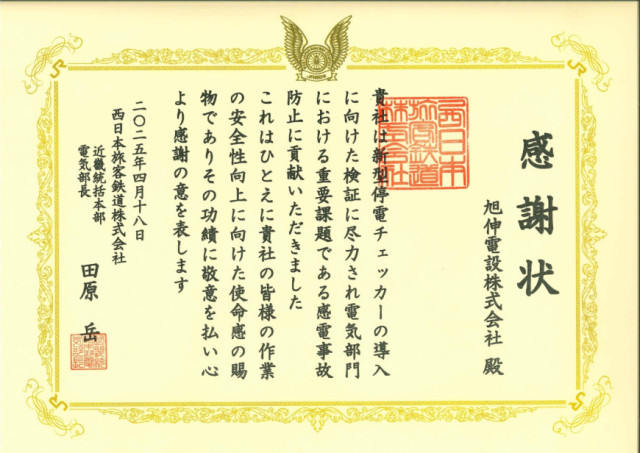 感謝状
旭伸電設株式会社 殿
貴社は新型停電チェッカーの導入
に向けた検証に尽力され電気部門
における重要課題である感電事故
防止に貢献いただきました
これはひとえに貴社の皆様の作業
の安全性向上に向けた使命感の賜
物でありその功績に敬意を払い心
より感謝の意を表します
二〇二五年四月十八日
西日本旅客鉄道株式会社
近畿統括本部
電気部長
田原 岳
西日本
旅客鉄道
株式会社